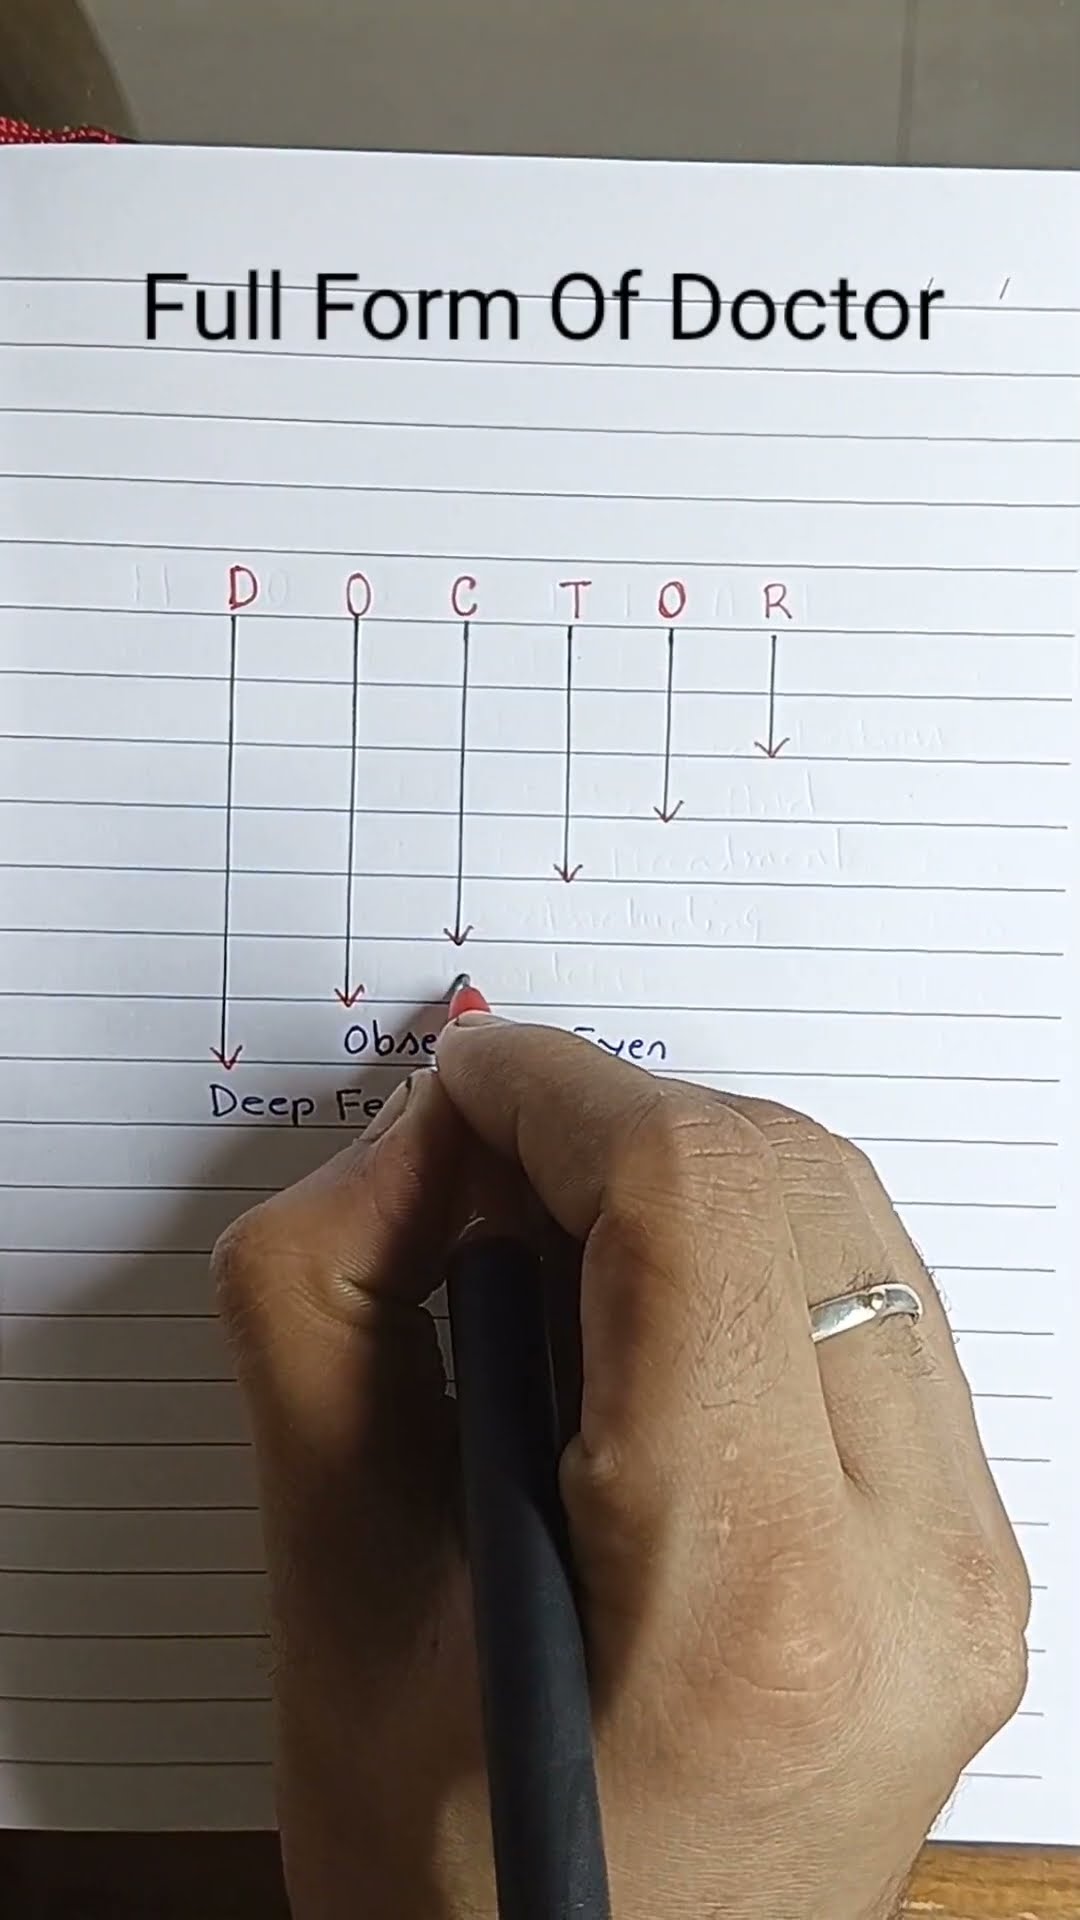 Full Form Of Doctor
D O C T O R
Obse Eyen
Deep Fe